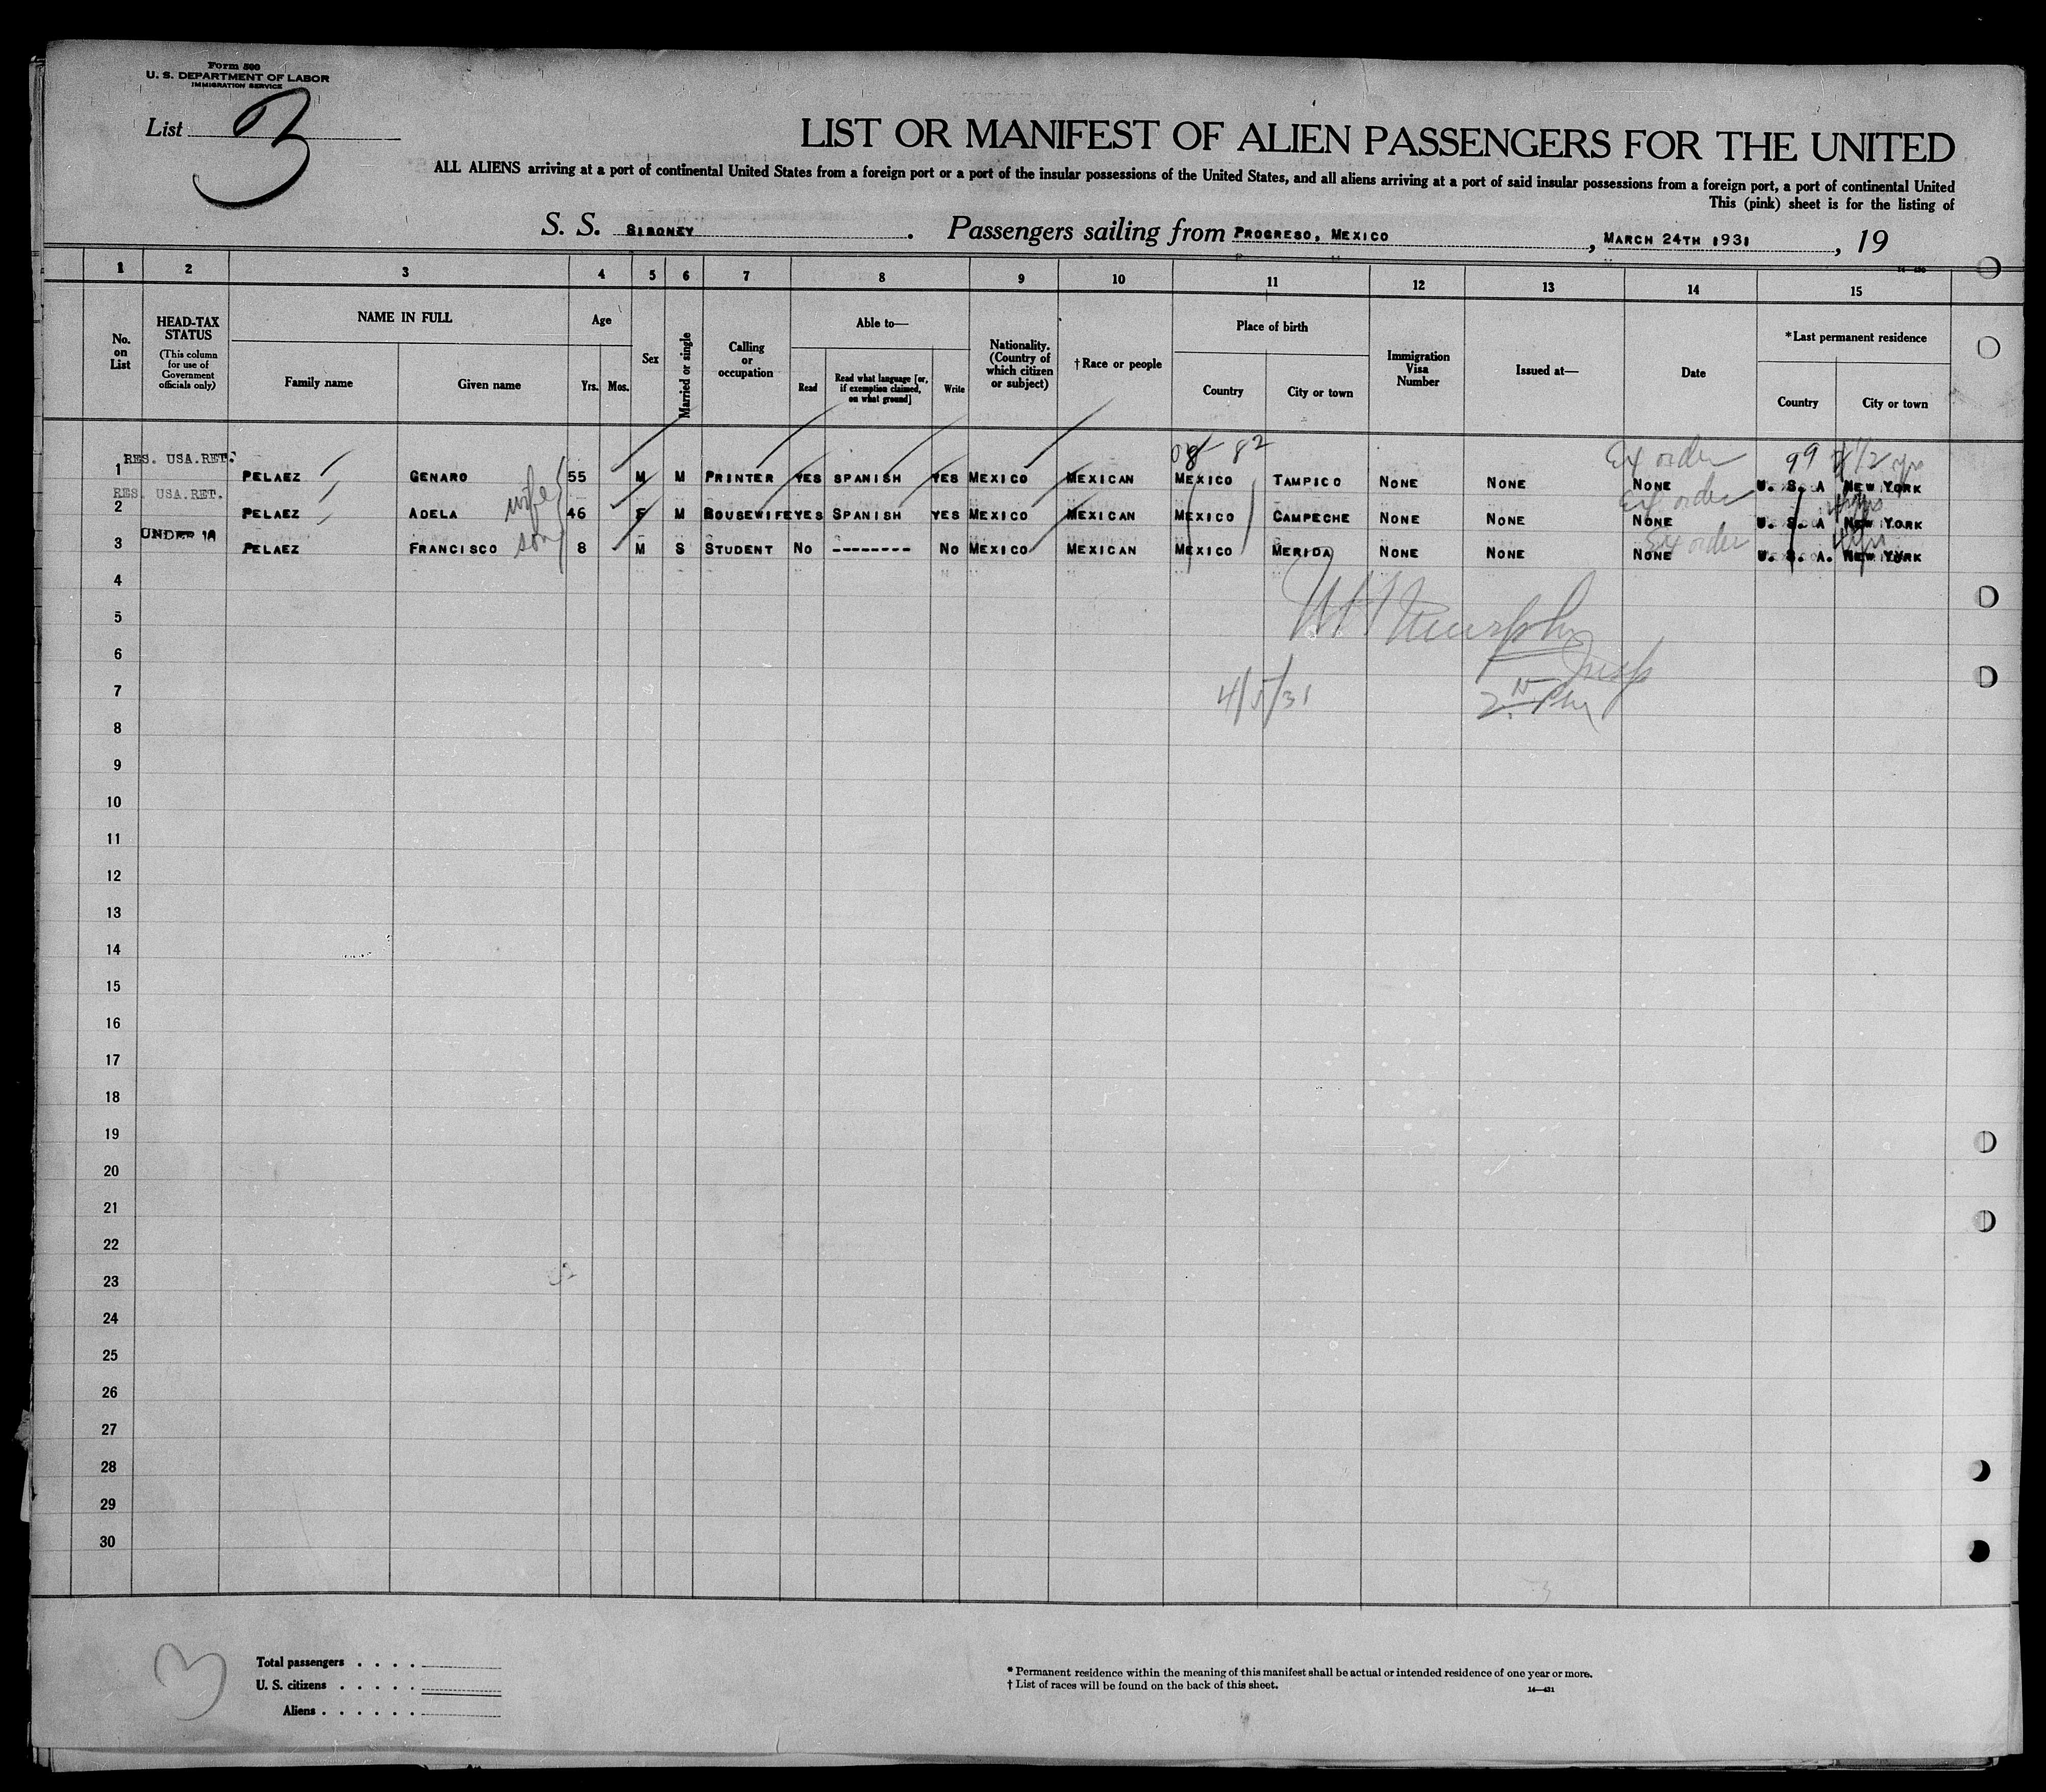 Form 500
U. S. DEPARTMENT OF LABOR
IMMIGRATION SERVICE
List 3
LIST OR MANIFEST OF ALIEN PASSENGERS FOR THE UNITED
ALL ALIENS arriving at a port of continental United States from a foreign port or a port of the insular possessions of the United States, and all aliens arriving at a port of said insular possessions from a foreign port, a port of continental United
This (pink) sheet is for the listing of
S. S. SIBONEY. Passengers sailing from PROGRESO, MEXICO, MARCH 24TH 1931, 19
1 2 3 4 5 6 7 8 9 10 11 12 13 14 15
No. on List
HEAD-TAX STATUS
(This column for use of Government officials only)
NAME IN FULL
Family name
Given name
Age
Yrs.
Mos.
Sex
Married or single
Calling or occupation
Able to—
Read
Read what language [or, if exemption claimed, on what ground]
Write
Nationality. (Country of which citizen or subject)
† Race or people
Place of birth
Country
City or town
Immigration Visa Number
Issued at—
Date
*Last permanent residence
Country
City or town
08 82 Ex order 99
1 RES. USA.RET. PELAEZ GENARO 55 M M PRINTER YES SPANISH YES MEXICO MEXICAN MEXICO TAMPICO NONE NONE NONE U. S. A NEW YORK
wife Ex order
2 RES. USA.RET. PELAEZ ADELA 46 F M HOUSEWIFE YES SPANISH YES MEXICO MEXICAN MEXICO CAMPECHE NONE NONE NONE U. S. A NEW YORK
son Ex order
3 UNDER 16 PELAEZ FRANCISCO 8 M S STUDENT NO -------- NO MEXICO MEXICAN MEXICO MERIDA NONE NONE NONE U. S. A. NEW YORK
4
5
Murphy
6
Insp
7
4/5/31
8
9
10
11
12
13
14
15
16
17
18
19
20
21
22
23
24
25
26
27
28
29
30
3
Total passengers
U. S. citizens
Aliens
* Permanent residence within the meaning of this manifest shall be actual or intended residence of one year or more.
† List of races will be found on the back of this sheet.
14—431